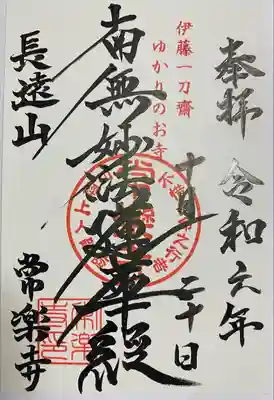 奉拝 令和六年
十月二十日
伊藤一刀齋
ゆかりのお寺
南無妙法蓮華経
長遠山 常楽寺